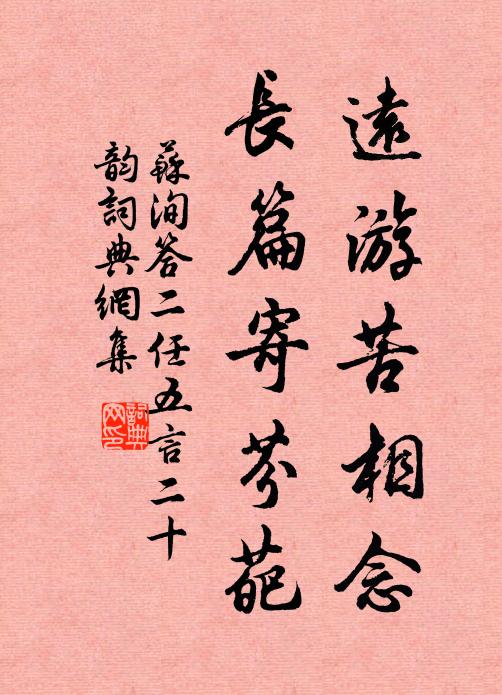 遠游苦相念
長篇寄芬葩
蘇洵答二任五言二十
韵詞典網集
詞典網印